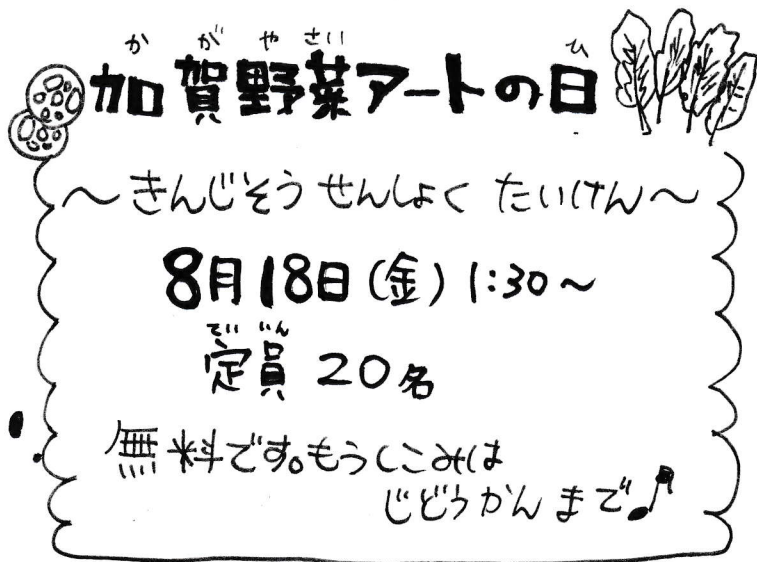 かがやさい ひ
加賀野菜アートの日
～きんじそう せんしょく たいけん～
8月18日(金) 1:30～
ていいん
定員 20名
無料です。もうしこみは
じどうかんまで♪